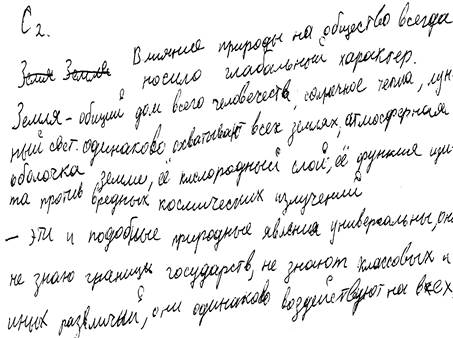 С2.
Земля Земля Влияние природы на общество всегда
носило глабальный характер.
Земля - общий дом всего человечества, солнечное тепло, лун-
ный свет. одинаково охватывают всех землях, атмосферная
оболочка земли, её кислородный слой, её функция щи-
та против вредных космических излучений
- эти и подобные природные явления универсальны, они
не знаю границы государств, не знают классовых и
иных развличий, они одинаково воздействуют на всех,